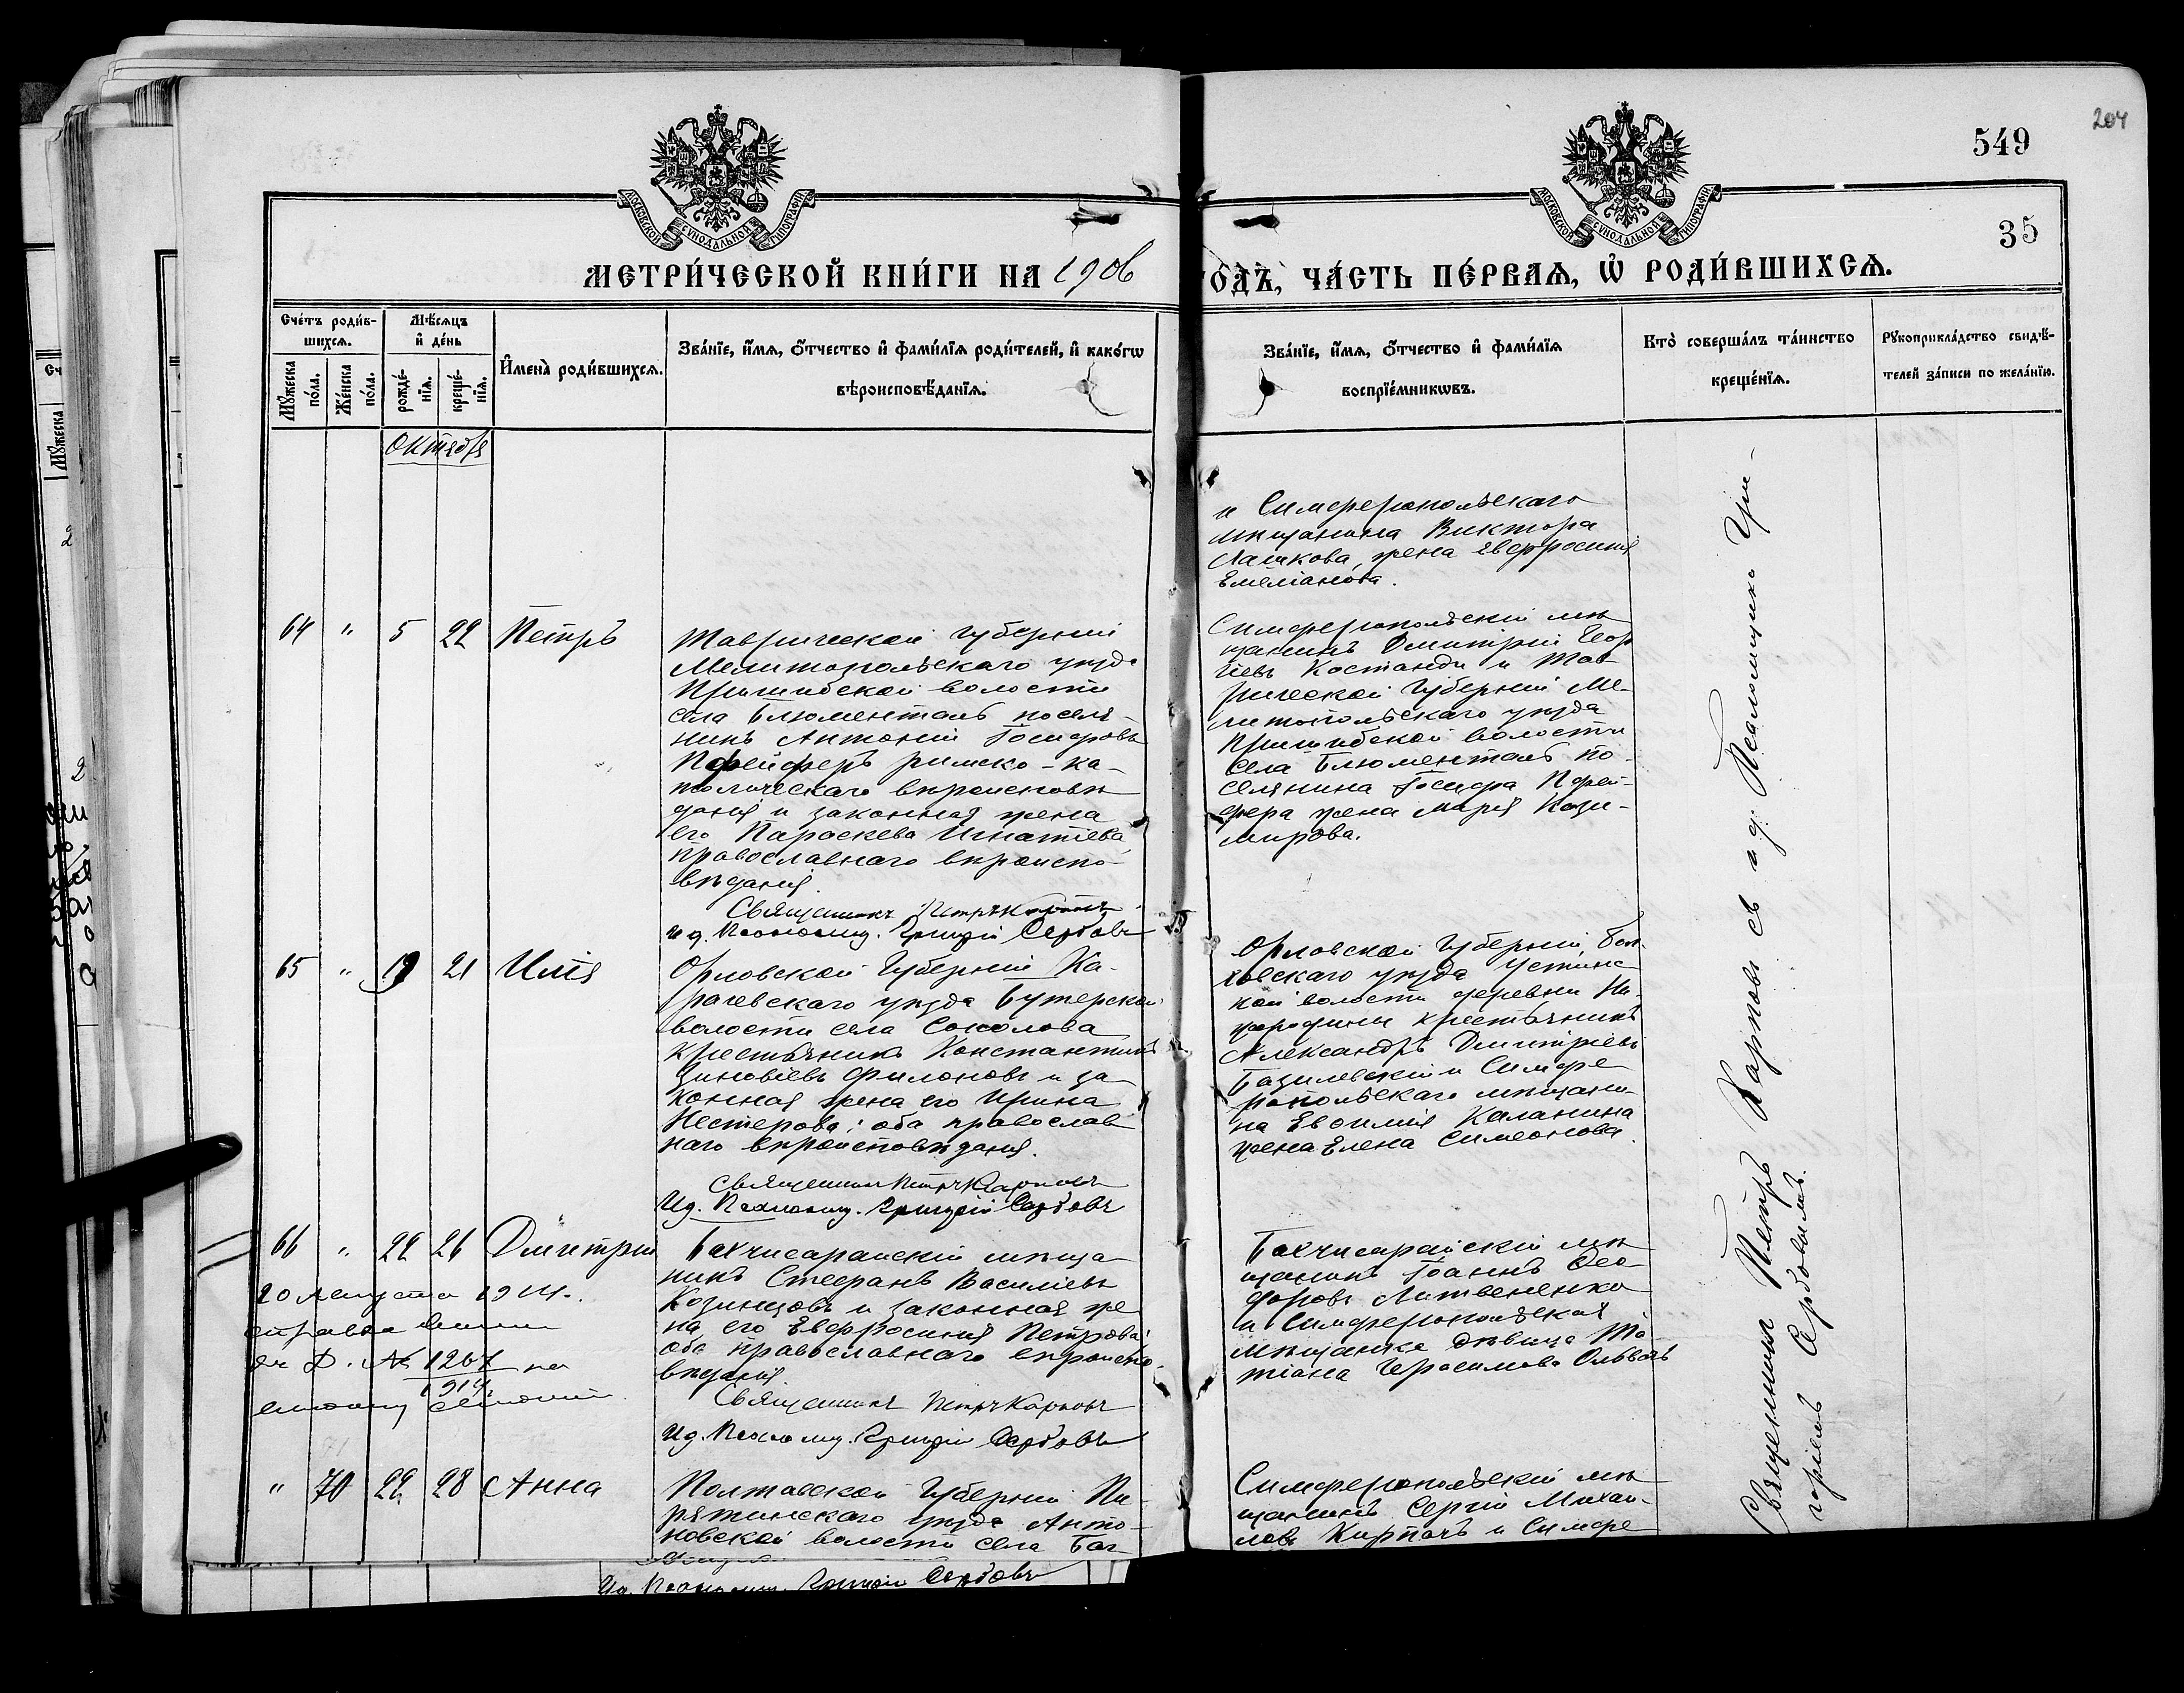 204
549
35
МОСКОВСКОЙ СУНОДАЛЬНОЙ ТИПОГРАФІИ
МОСКОВСКОЙ СУНОДАЛЬНОЙ ТИПОГРАФІИ
МЕТРИ́ЧЕСКОЙ КНИ́ГИ НА 1906
ОДЪ, ЧА́СТЬ ПЕ́РВАЯ, Ѡ РОДИ́ВШИХСЯ.
Сче́тъ роди́в-
шихся.
Мꙋ́жеска
по́ла.
Же́нска
по́ла.
Мѣ́сяцъ
и де́нь
рожде́-
нїя.
креще́-
нїя.
И҆мена̀ роди́вшихся.
Зва́нїе, и҆́мя, ѻ҆́тчество и҆ фами́лїя роди́телей, и҆ како́гѡ
вѣроисповѣ́данїя.
Зва́нїе, и҆́мя, ѻ҆́тчество и҆ фами́лїя
воспрїе́мникѡвъ.
Кто̀ соверша́лъ та́инство
креще́нїя.
Рꙋкоприкла́дство свидѣ́-
телей за́писи по жела́нїю.
Октября
и Симферопольскаго
мѣщанина Виктора
Лашкова, жена Евфросинія
Емеліанова.
64 " 5 22 Петръ
Таврической губерніи
Мелитопольскаго уѣзда
Пришибской волости
села Блюменталь поселя-
нинъ Антоній Іосифовъ
Пфейферъ римско-ка-
толическаго вѣроисповѣ
данія и законная жена
его Параскева Игнатіева
православнаго вѣроиспо-
вѣданія.
Священникъ Петръ Карповъ
И д. Псаломщ. Григорій Сербовъ
Симферопольскій мѣ
щанинъ Димитрій Геор
гіевъ Костанди и Тав
рической губерніи Ме-
литопольскаго уѣзда
Пришибской волости
села Блюменталь по-
селянина Іосифа Пфей-
фера жена Марія Кази-
мирова.
65 " 19 21 Илія
Орловской губерніи Ка-
рачевскаго уѣзда Бутерской
волости села Соколова
крестьянинъ Константинъ
Зиновіевъ Филоновъ и за
конная жена его Ирина
Нестерова; оба православ
наго вѣроисповѣданія.
Священникъ Петръ Карповъ
И д. Псаломщ. Григорій Сербовъ
Орловской губерніи, Бол-
ховскаго уѣзда
кой волости деревни
крестьянинъ
Александръ Димитріевъ
Базилевскій и Симфе
ропольскаго мѣщани-
на Евѳимія Каланина
жена Елена Симеонова.
66 " 22 26 Димитрій
20 Августа 1914.
справка
№ 1267 на
1914
Бахчисарайскій мѣща
нинъ Стефанъ Василіевъ
Козинцовъ и законная же
на его Евфросинія Петрова;
оба православнаго вѣроиспо-
вѣданія.
Священникъ Петръ Карповъ
И д. Псаломщ. Григорій Сербовъ
Бахчисарайскій мѣ
щанинъ Іоаннъ Ѳео-
доровъ Литвененко
и Симферопольская
мѣщанка дѣвица Та
тіана Герасимова
" 70 22 28 Анна
Полтавской губерніи Пи-
рятинскаго уѣзда Анто-
новской волости села Бог-
Симферопольскій мѣ
щанинъ Сергій Михаи-
ловъ Кирпачъ и Симфе
Священникъ Петръ Карповъ съ и. д. Псаломщика Гри-
горіемъ Сербовымъ.
Ид. Псаломщ. Григорій Сербовъ